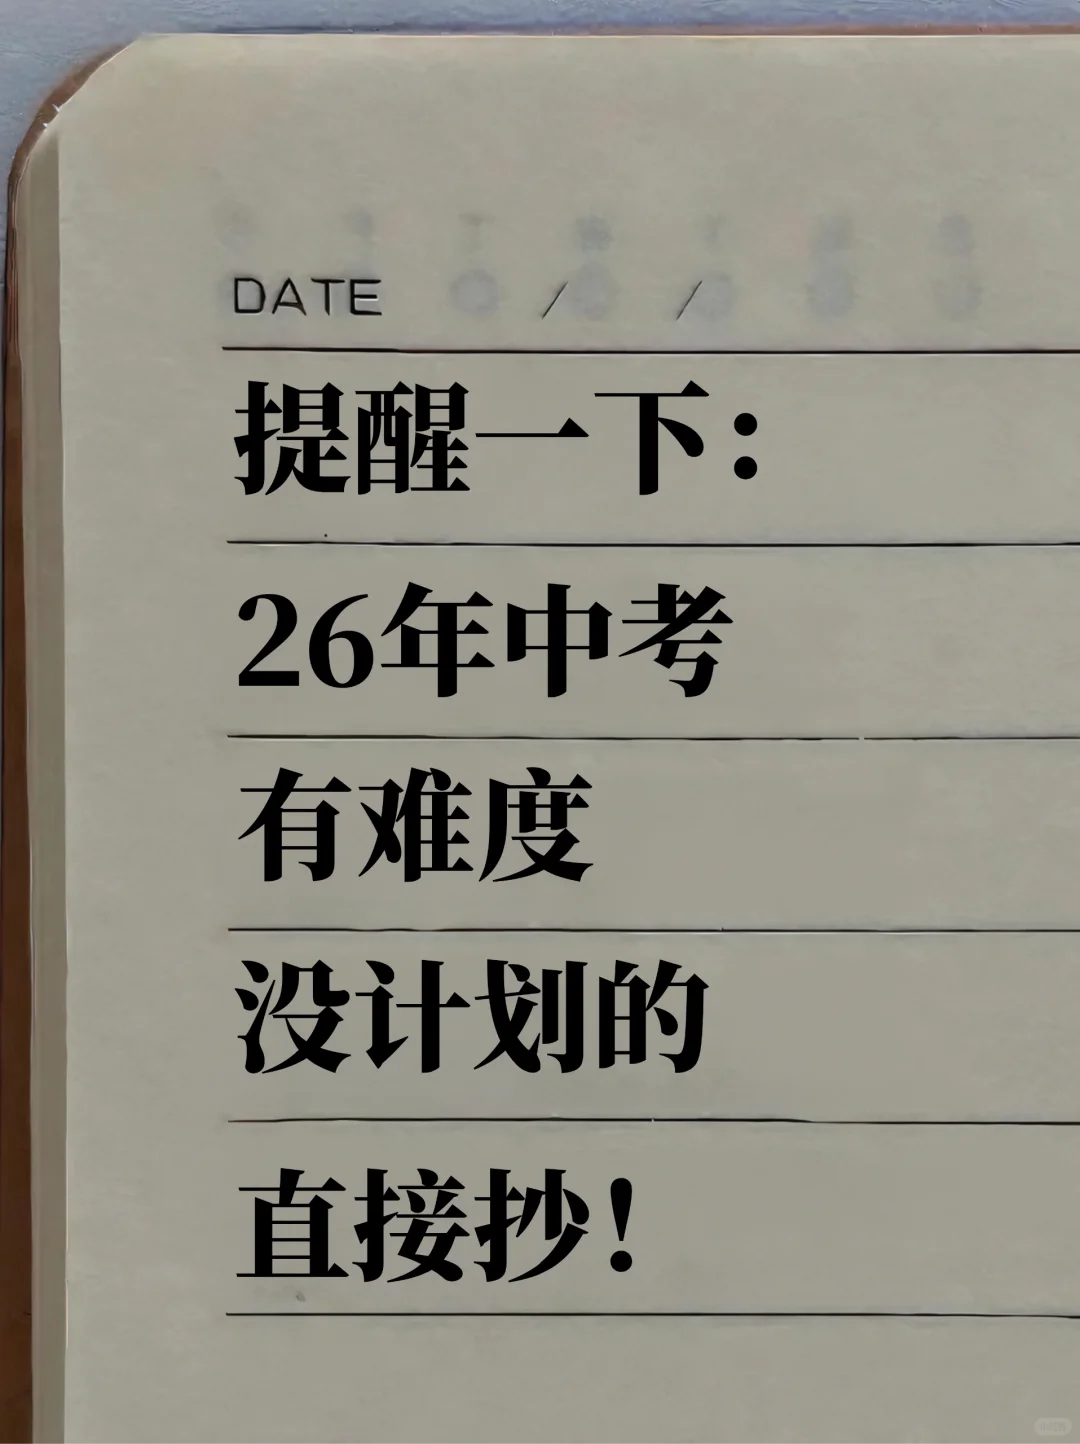 DATE / /
提醒一下：
26年中考
有难度
没计划的
直接抄！